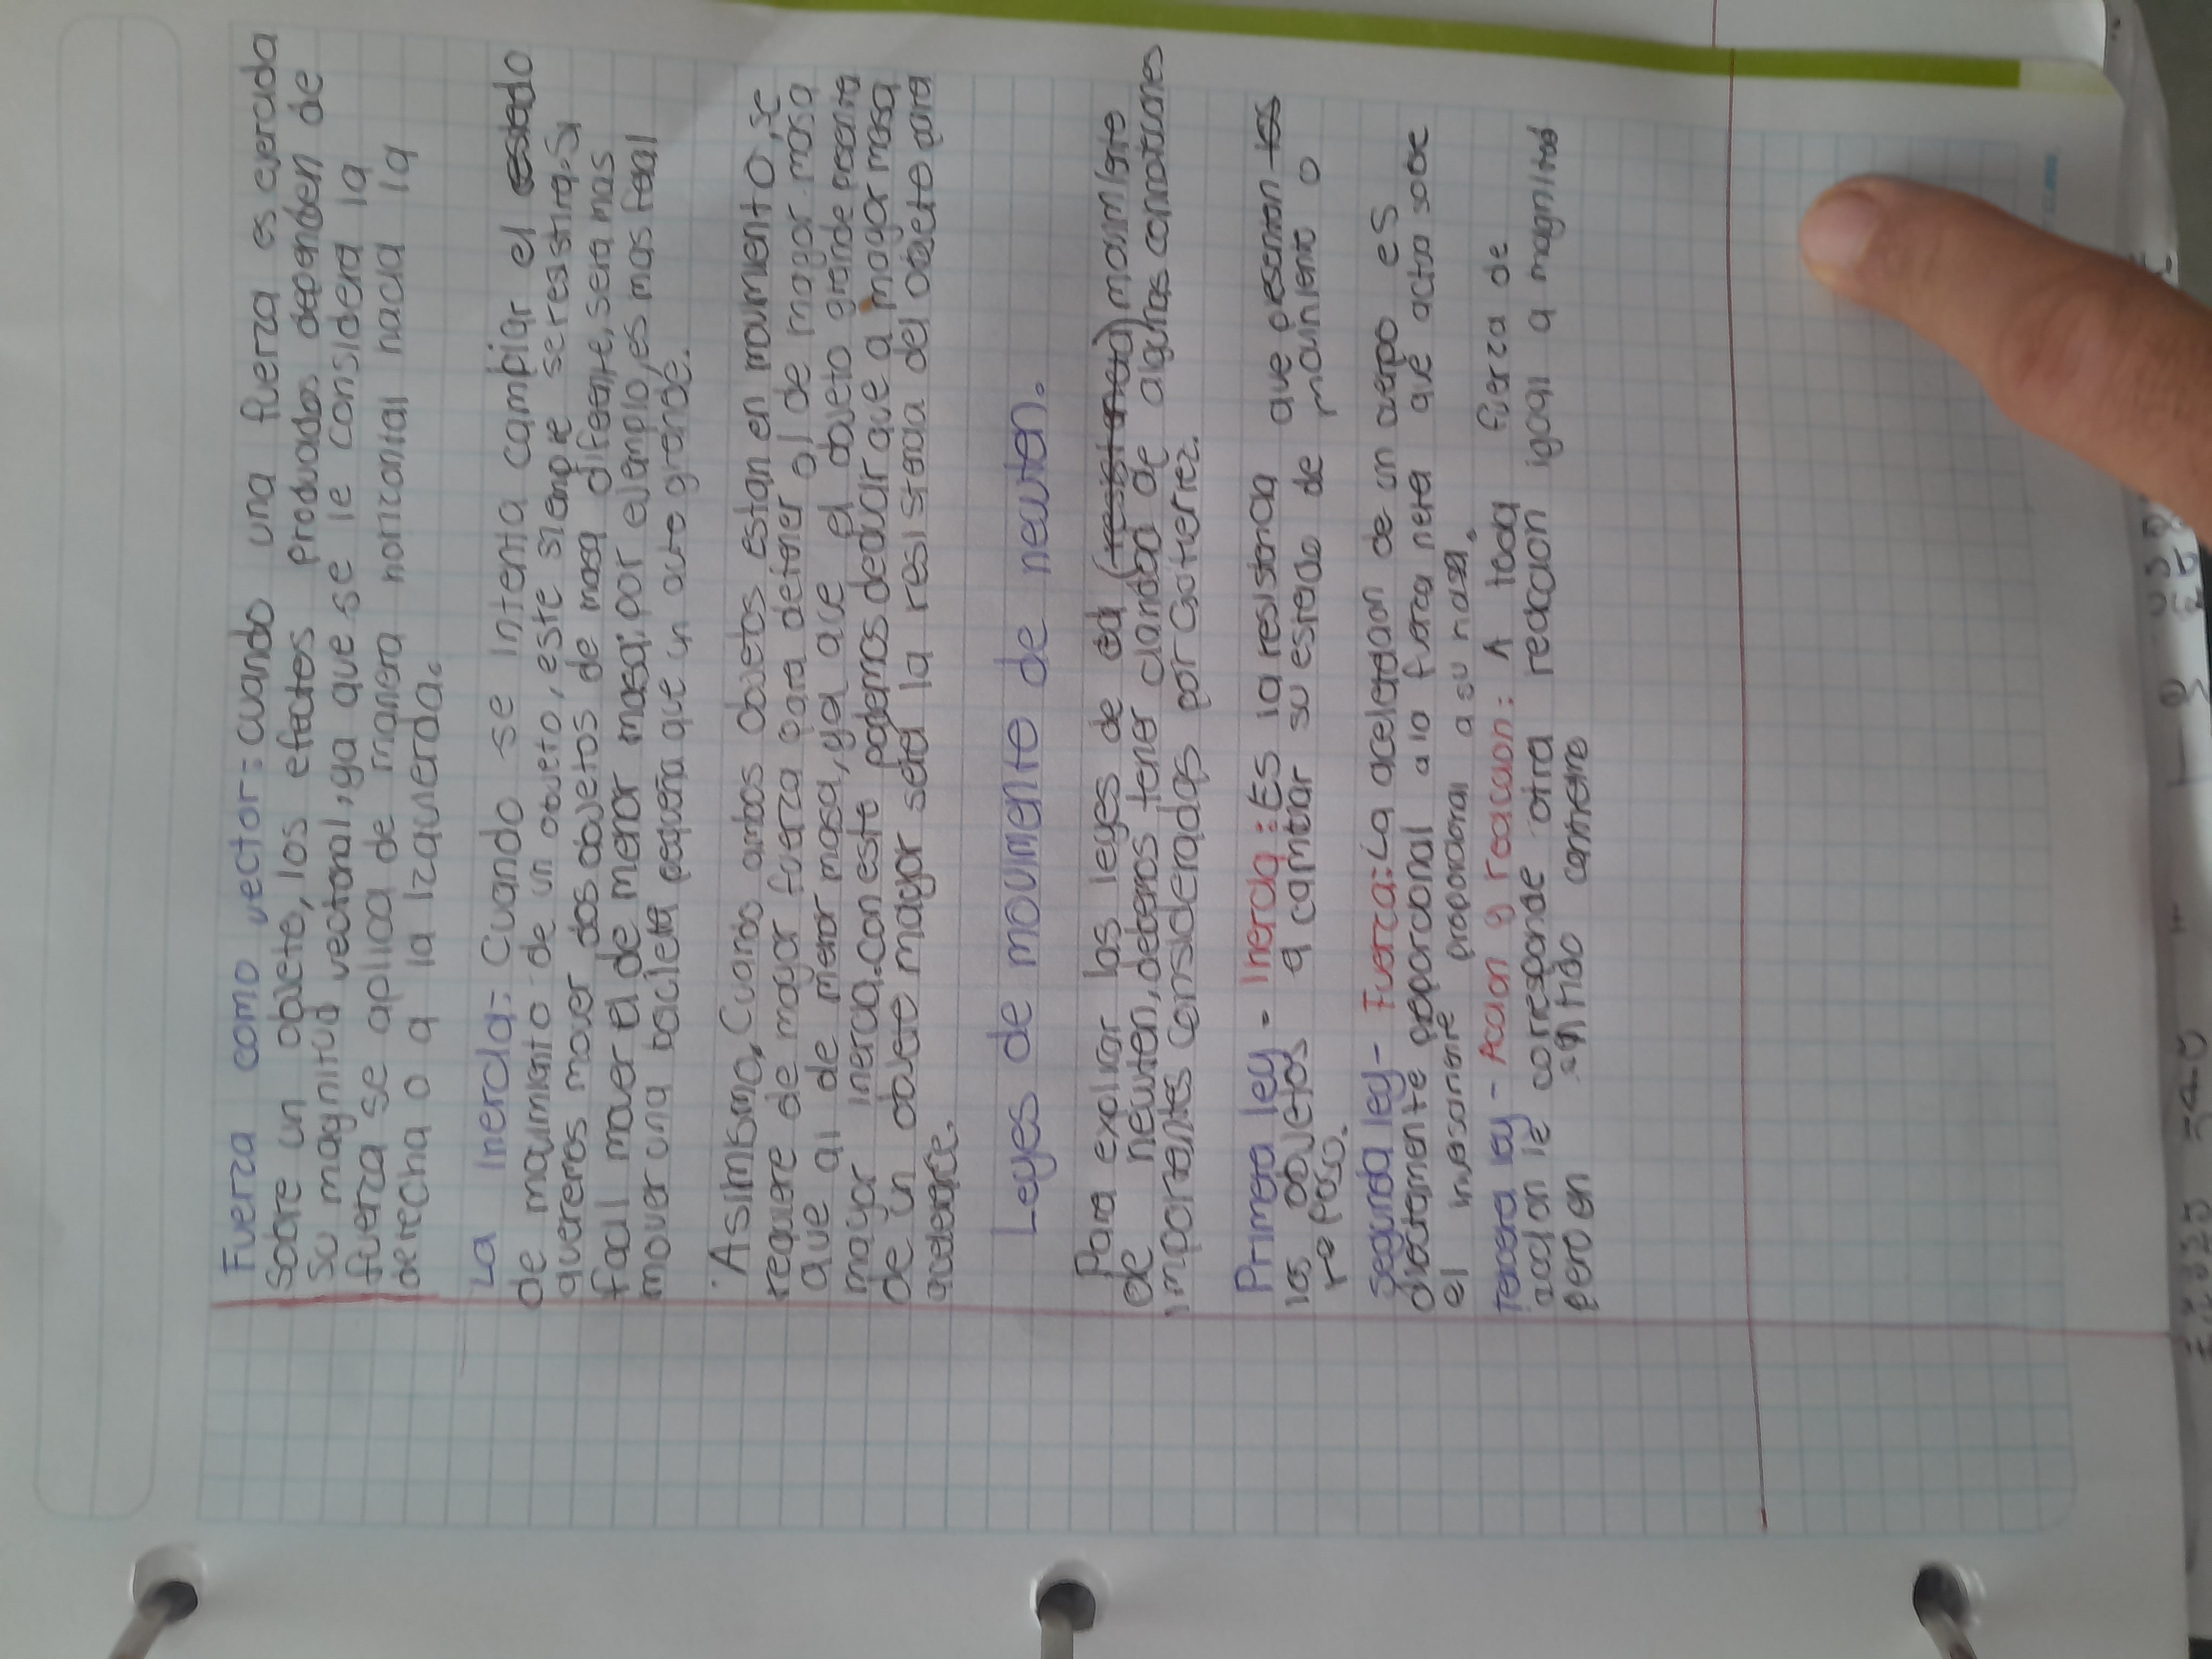 Fuerza como vector: cuando una fuerza es ejercida
sobre un objeto, los efectos producidos dependen de
su magnitud vectorial, ya que se le considera la
fuerza se aplica de manera horizontal hacia la
derecha o a la izquierda.
La Inercia: Cuando se intenta cambiar el estado
de movimiento de un objeto, este siempre se resistira. Si
queremos mover dos objetos de masa diferente, sera mas
facil mover el de menor masa; por ejemplo, es mas facil
mover una bicicleta pequeña que un auto grande.
Asimismo, Cuando ambos objetos estan en movimiento, se
requiere de mayor fuerza para detener al de mayor masa
que al de menor masa, ya que el objeto grande
mayor inercia. con esto podemos deducir que a mayor masa
de un objeto mayor sera la resistencia del objeto para
acelerarce.
Leyes de movimiento de newton.
Para explicar las leyes de
de newton, debemos tener claridad de algunas connotaciones
importantes consideradas por Gutierrez.
Primera ley - Inercia: Es la resistencia que presentan los
los objetos a cambiar su estado de movimiento o
reposo.
Segunda ley - Fuerza: La aceleracion de un cuerpo es
directamente proporcional a la fuerza neta que actua sobre
el inversamente proporcional a su masa.
Tercera ley - Accion y reaccion: A toda fuerza de
accion le corresponde otra reaccion igual a magnitud
pero en sentido contrario